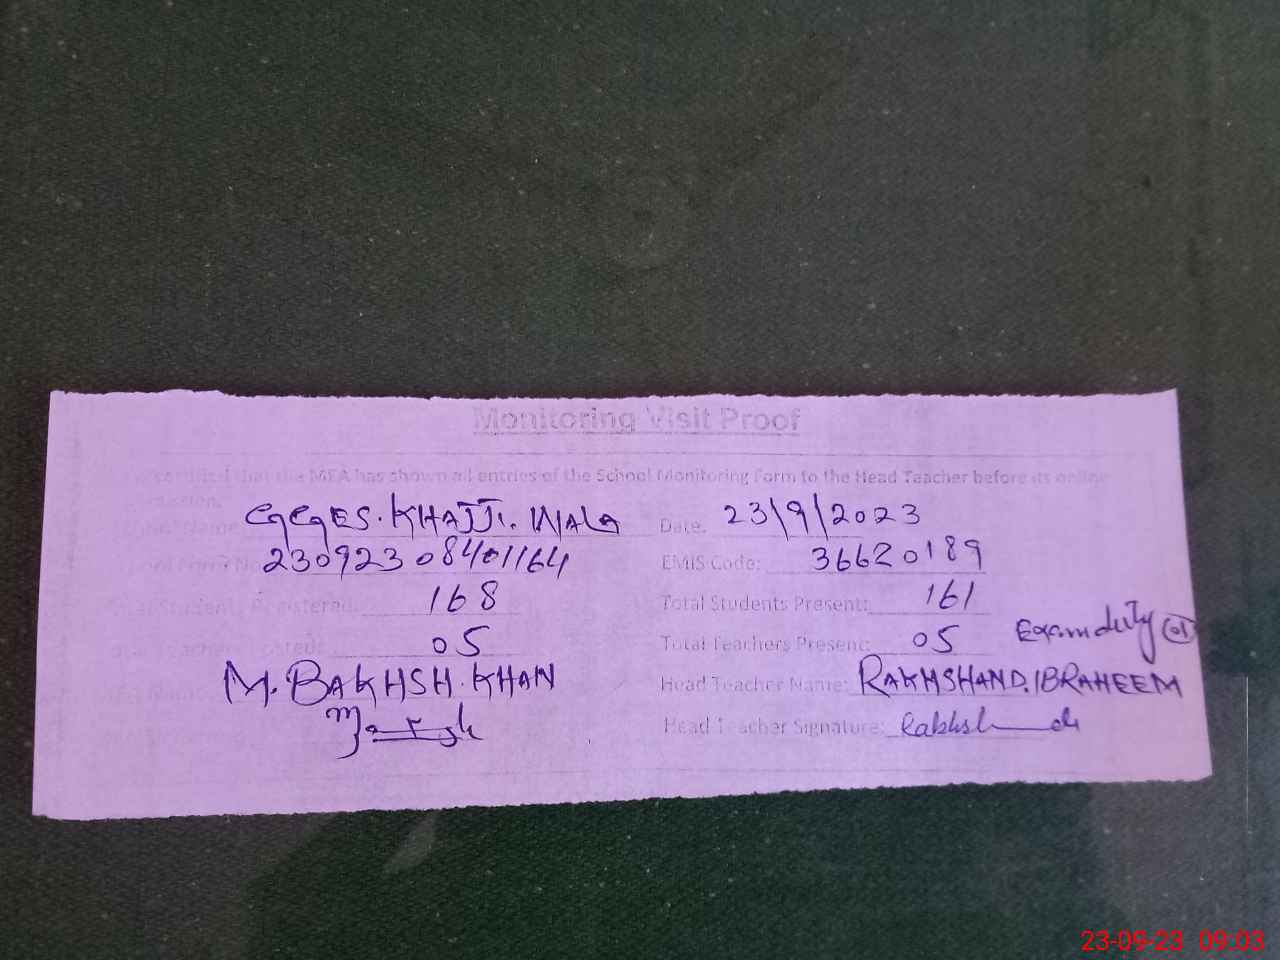 Monitoring Visit Proof
certified that the MEA has shown all entries of the School Monitoring Form to the Head Teacher before its online
Name GGES. KHAJJI. WALA Date: 23/9/2023
Form No 23092308401164 EMIS Code: 36620189
Students Registered: 168 Total Students Present: 161
Teachers Posted: 05 Total Teachers Present: 05 Exam duty 01
Name M. BAKHSH. KHAN Head Teacher Name: RAKHSHAND. IBRAHEEM
Head Teacher Signature:
23-09-23 09:03